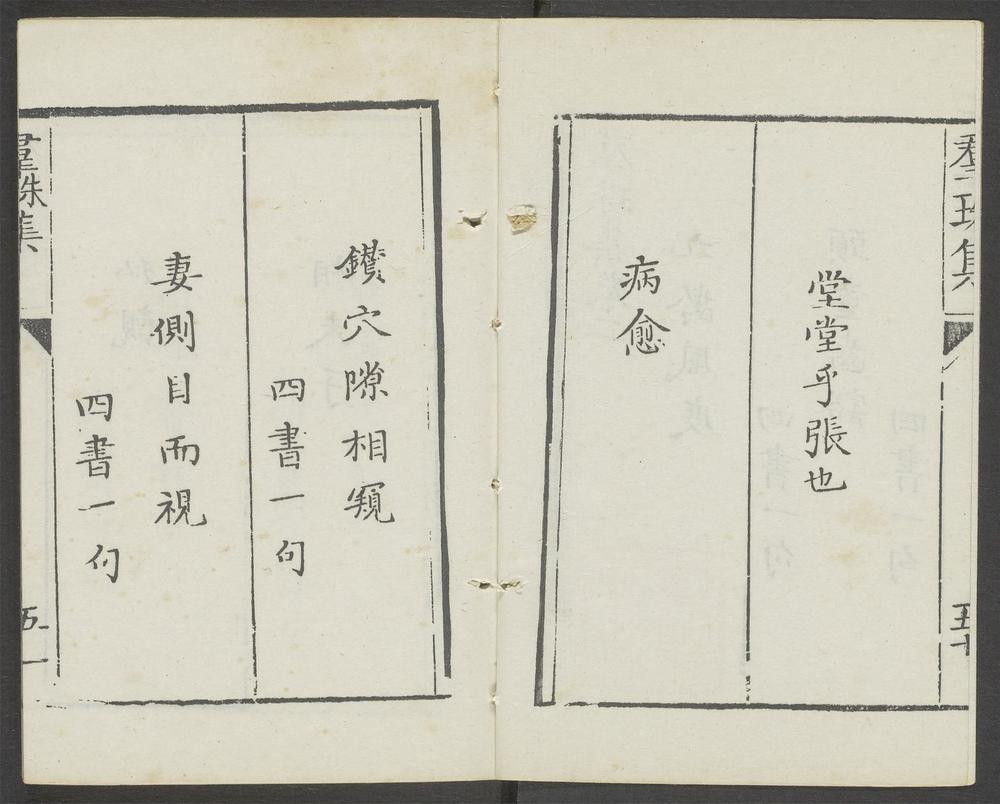 羣珠集
五十
堂堂乎張也
病愈
鑚穴隙相窺
四書一句
妻側目而視
四書一句
羣珠集
五一